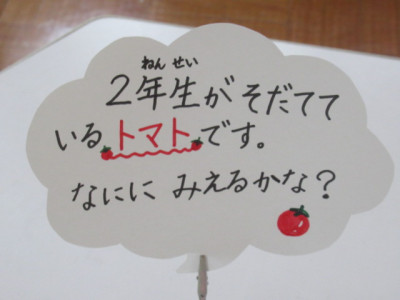 ねん せい
2年生がそだてて
いるトマトです。
なにに みえるかな?